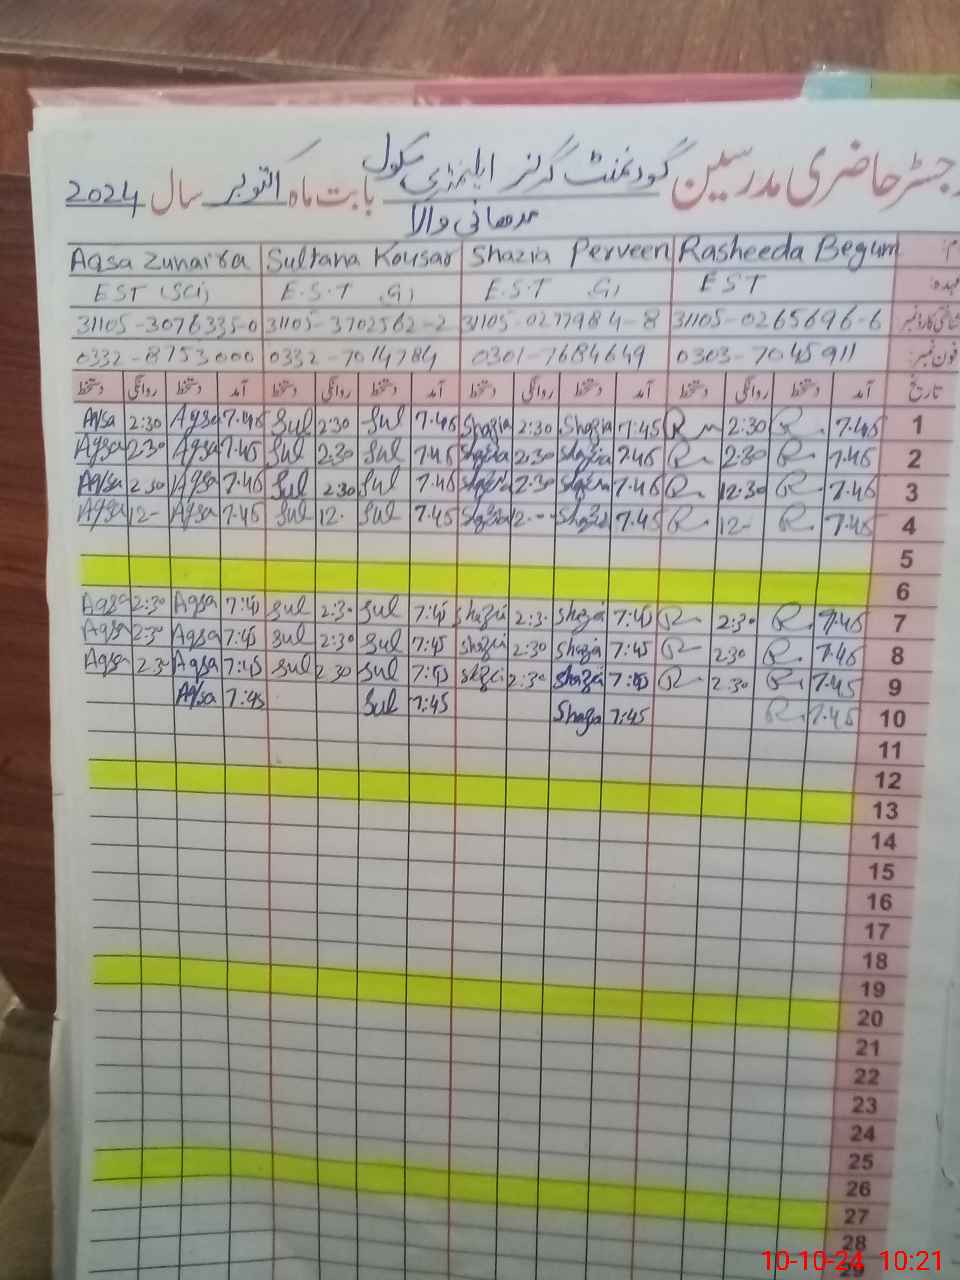 رجسٹر حاضری مدرسین گورنمنٹ گرلز ایلیمنٹری سکول بابت ماہ اکتوبر سال 2024
مدھانی والا
Aqsa Zunaira Sultana Kousar Shazia Perveen Rasheeda Begum
EST (Sci) E.S.T (G) E.S.T (G) EST عہدہ:
31105-3076335-0 31105-3702562-2 31105-0277984-8 31105-0265696-6 شناختی کارڈ نمبر
0332-8753000 0332-7014784 0301-7684649 0303-7045911 فون نمبر:
دستخط روانگی دستخط آمد دستخط روانگی دستخط آمد دستخط روانگی دستخط آمد دستخط روانگی دستخط آمد تاریخ
Aqsa 2:30 Aqsa 7:45 Sul 2:30 Sul 7:45 Shazia 2:30 Shazia 7:45 R 2:30 R 7:45 1
Aqsa 2:30 Aqsa 7:45 Sul 2:30 Sul 7:45 Shazia 2:30 Shazia 7:45 R 2:30 R 7:45 2
Aqsa 2:30 Aqsa 7:45 Sul 2:30 Sul 7:45 Shazia 2:30 Shazia 7:45 R 12:30 R 7:45 3
Aqsa 12- Aqsa 7:45 Sul 12- Sul 7:45 Shazia 12-- Shazia 7:45 R 12- R 7:45 4
5
6
Aqsa 2:30 Aqsa 7:45 Sul 2:30 Sul 7:45 Shazia 2:30 Shazia 7:45 R 2:30 R 7:45 7
Aqsa 2:30 Aqsa 7:45 Sul 2:30 Sul 7:45 Shazia 2:30 Shazia 7:45 R 2:30 R 7:45 8
Aqsa 2:30 Aqsa 7:45 Sul 2:30 Sul 7:45 Shazia 2:30 Shazia 7:45 R 2:30 R 7:45 9
Aqsa 7:45 Sul 7:45 Shazia 7:45 R 7:45 10
11
12
13
14
15
16
17
18
19
20
21
22
23
24
25
26
27
28
29
10-10-24 10:21